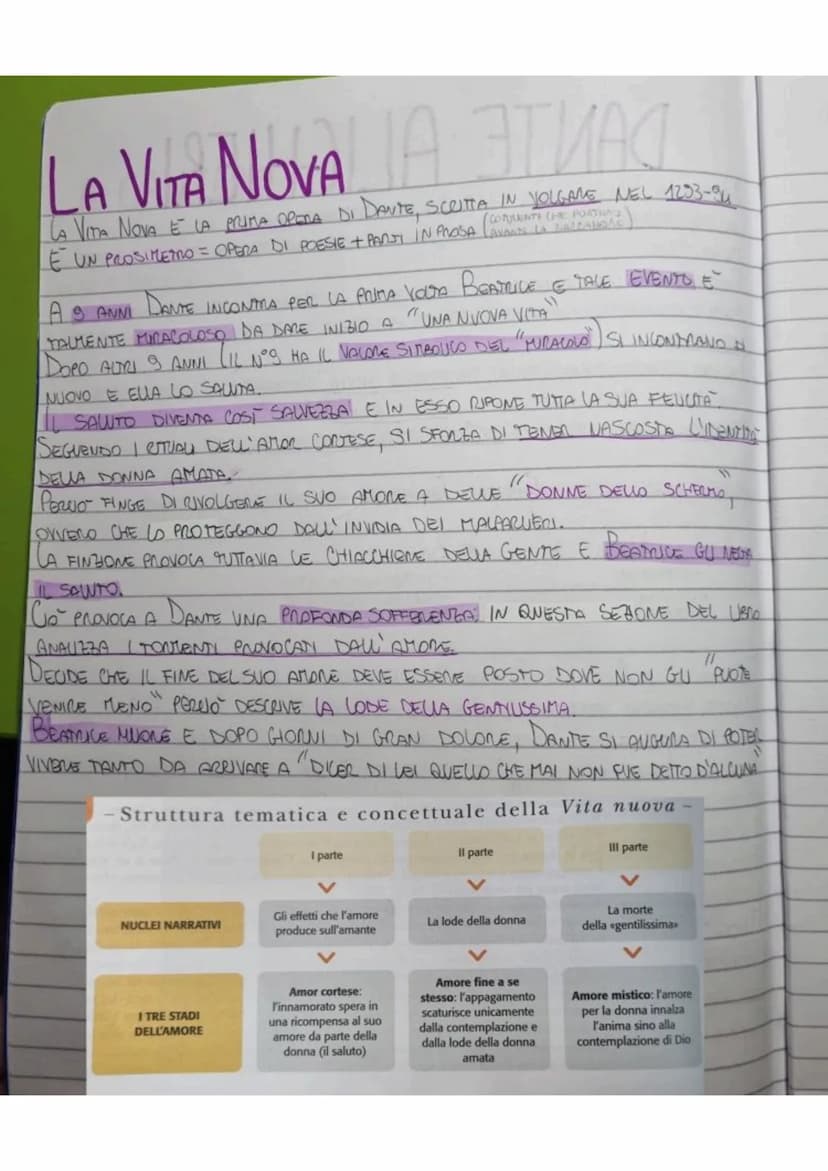 LA VITA NOVA
LA VITA NOVA È LA PRIMA OPERA DI DANTE, SCRITTA IN VOLGARE NEL 1293-94
È UN PROSIMETRO = OPERA DI POESIE + PARTI IN PROSA (COMMENTI CHE PORTANO
AVANTI LA NARRAZIONE)
A 9 ANNI DANTE INCONTRA PER LA PRIMA VOLTA BEATRICE E TALE EVENTO È
TALMENTE MIRACOLOSO DA DARE INIZIO A "UNA NUOVA VITA"
DOPO ALTRI 9 ANNI (IL N°9 HA IL VALORE SIMBOLICO DEL "MIRACOLO") SI INCONTRANO DI
NUOVO E ELLA LO SALUTA.
IL SALUTO DIVENTA COSÌ SALVEZZA E IN ESSO RIPONE TUTTA LA SUA FELICITÀ.
SEGUENDO I RITUALI DELL'AMOR CORTESE, SI SFORZA DI TENER NASCOSTA L'IDENTITÀ
DELLA DONNA AMATA.
PERCIÒ FINGE DI RIVOLGERE IL SUO AMORE A DELLE "DONNE DELLO SCHERMO",
OVVERO CHE LO PROTEGGONO DALL'INVIDIA DEI MALPARLIERI.
LA FINZIONE PROVOCA TUTTAVIA LE CHIACCHIERE DELLA GENTE E BEATRICE GLI NEGA
IL SALUTO.
CIÒ PROVOCA A DANTE UNA PROFONDA SOFFERENZA: IN QUESTA SEZIONE DEL LIBRO
ANALIZZA I TORMENTI PROVOCATI DALL'AMORE.
DECIDE CHE IL FINE DEL SUO AMORE DEVE ESSERE POSTO DOVE NON GLI "PUOTE
VENIRE MENO" PERCIÒ DESCRIVE LA LODE DELLA GENTILISSIMA.
BEATRICE MUORE E DOPO GIORNI DI GRAN DOLORE, DANTE SI AUGURA DI POTER
VIVERE TANTO DA ARRIVARE A "DICER DI LEI QUELLO CHE MAI NON FUE DETTO D'ALCUNA"
– Struttura tematica e concettuale della Vita nuova –
I parte
II parte
III parte
NUCLEI NARRATIVI
Gli effetti che l'amore
produce sull'amante
La lode della donna
La morte
della «gentilissima»
I TRE STADI
DELL'AMORE
Amor cortese:
l'innamorato spera in
una ricompensa al suo
amore da parte della
donna (il saluto)
Amore fine a se
stesso: l'appagamento
scaturisce unicamente
dalla contemplazione e
dalla lode della donna
amata
Amore mistico: l'amore
per la donna innalza
l'anima sino alla
contemplazione di Dio